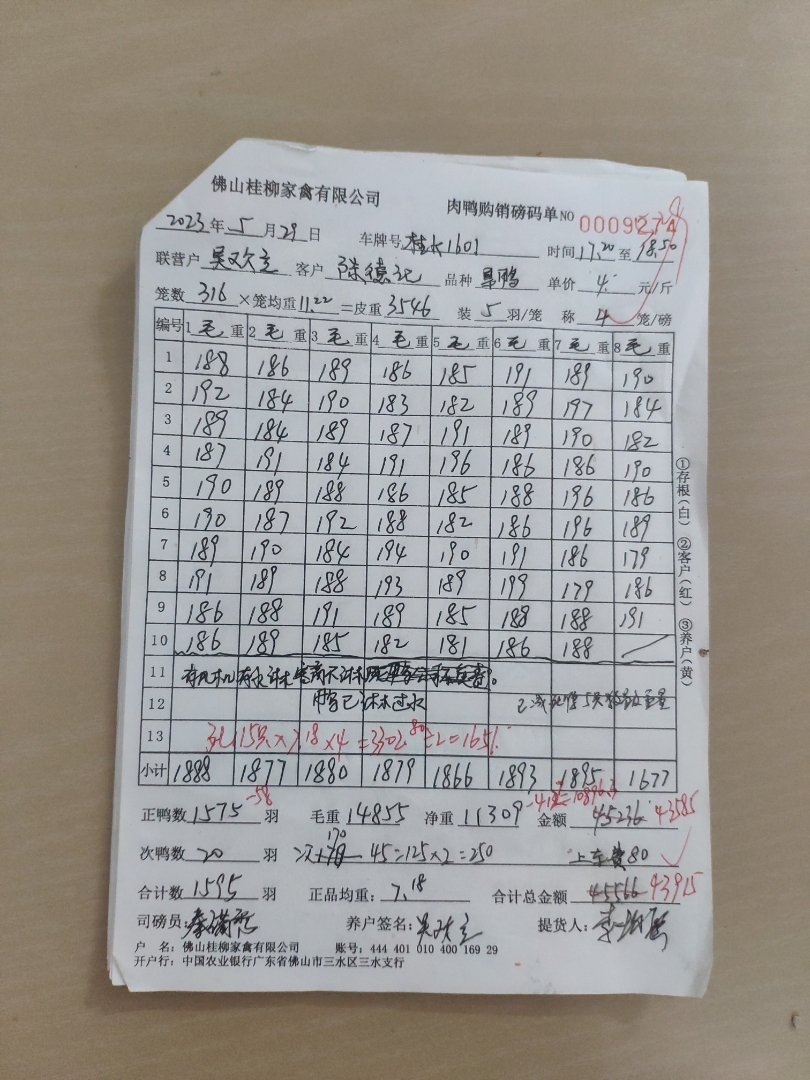 佛山桂柳家禽有限公司 肉鸭购销磅码单 NO 0009274
2023年 5 月 29 日 车牌号 桂长1601 时间 17.20 至 18.50
联营户 吴欢立 客户 陈德记 品种 旱鸭 单价 4. 元/斤
笼数 316 ×笼均重 11.22 =皮重 3546 装 5 羽/笼 称 4 笼/磅
编号 1 毛 重 2 毛 重 3 毛 重 4 毛 重 5 毛 重 6 毛 重 7 毛 重 8 毛 重
1 188 186 189 186 185 191 189 190
2 192 184 190 183 182 189 197 184
3 189 184 189 187 191 189 190 182
4 187 191 184 191 196 186 186 190
5 190 189 188 186 185 188 196 186
6 190 187 192 188 182 186 196 189
7 189 190 184 194 190 191 186 179
8 191 189 188 193 189 199 179 186
9 186 188 191 189 185 188 188 191
10 186 189 185 182 181 186 188
11
12
13 15只×7.18×4=
小计 1888 1877 1880 1879 1866 1893 1895 1677
正鸭数 1575 -58 羽 毛重 14855 净重 11309 金额 45236 43585
次鸭数 20 羽 170 -45=125×2=250 上车费80
合计数 1595 羽 正品均重: 7.18 合计总金额 45566 43915
司磅员: 养户签名: 吴欢立 提货人:
户 名: 佛山桂柳家禽有限公司 账号: 444 401 010 400 169 29
开户行: 中国农业银行广东省佛山市三水区三水支行
①存根(白) ②客户(红) ③养户(黄)